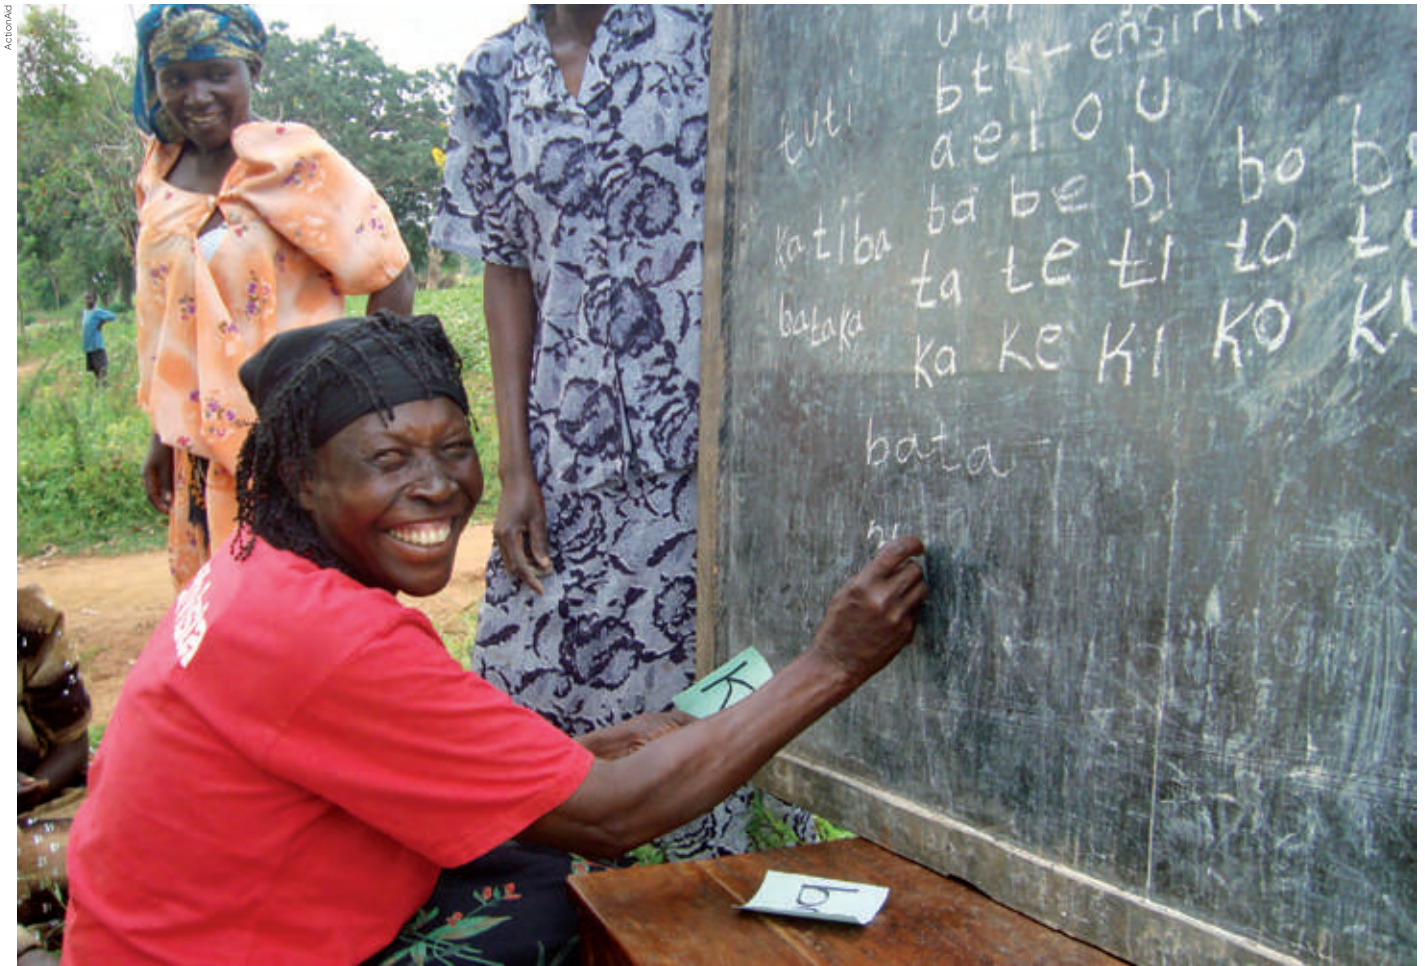 ActionAid
btk - ensiriki
a e i o u
tuti
ba be bi bo
katiba
ta te ti to tu
bataka
ka ke ki ko ku
bata
K
b